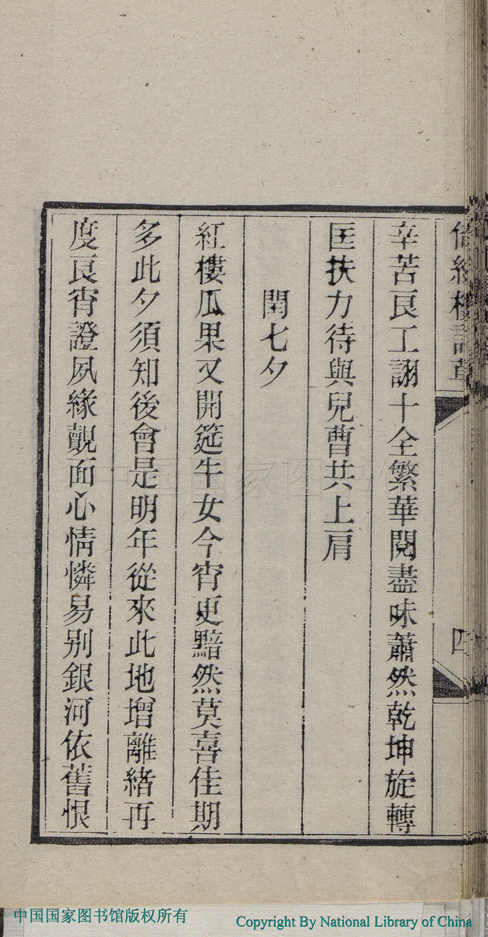 辛苦良工詡十全繁華閱盡味蕭然乾坤旋轉
匡扶力待與兒曹共上肩
閏七夕
紅樓瓜果又開筵牛女今宵更黯然莫喜佳期
多此夕須知後會是明年從來此地增離緒再
度良宵證夙緣覿面心情憐易別銀河依舊恨
四
中国国家图书馆版权所有
Copyright By National Library of China